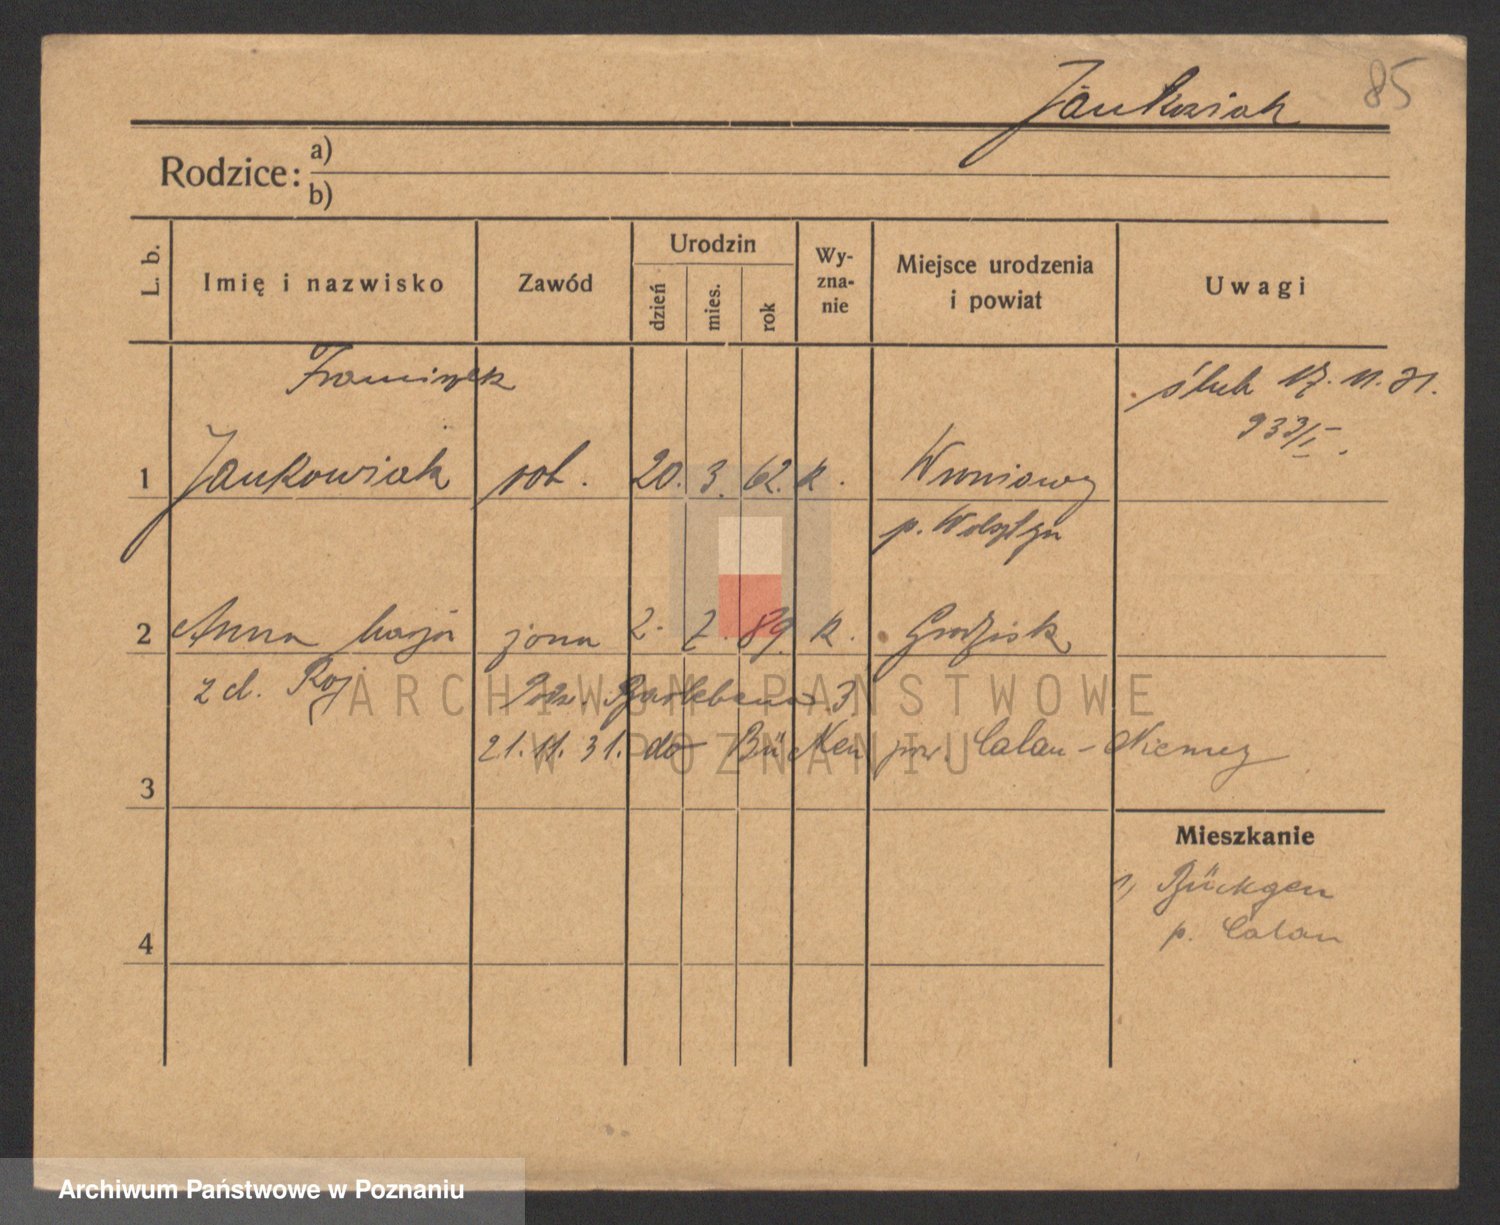 85
Jankowiak
Rodzice: a)
b)
L. b.
Imię i nazwisko
Zawód
Urodzin
dzień
mies.
rok
Wy-
zna-
nie
Miejsce urodzenia
i powiat
Uwagi
Franciszek
ślub 17. 11. 31.
933/I.
1 Jankowiak rob. 20. 3. 62. k. Wroniawy
p. Wolsztyn
2 Anna Marja żona 2. 7. 89. k. Grodzisk
z d. Roj
21. 11. 31. do Bücken pow. Calau - Niemcy
3
Mieszkanie
1, Bückgen
p. Calau
4
ARCHIWUM PAŃSTWOWE
W POZNANIU
Archiwum Państwowe w Poznaniu